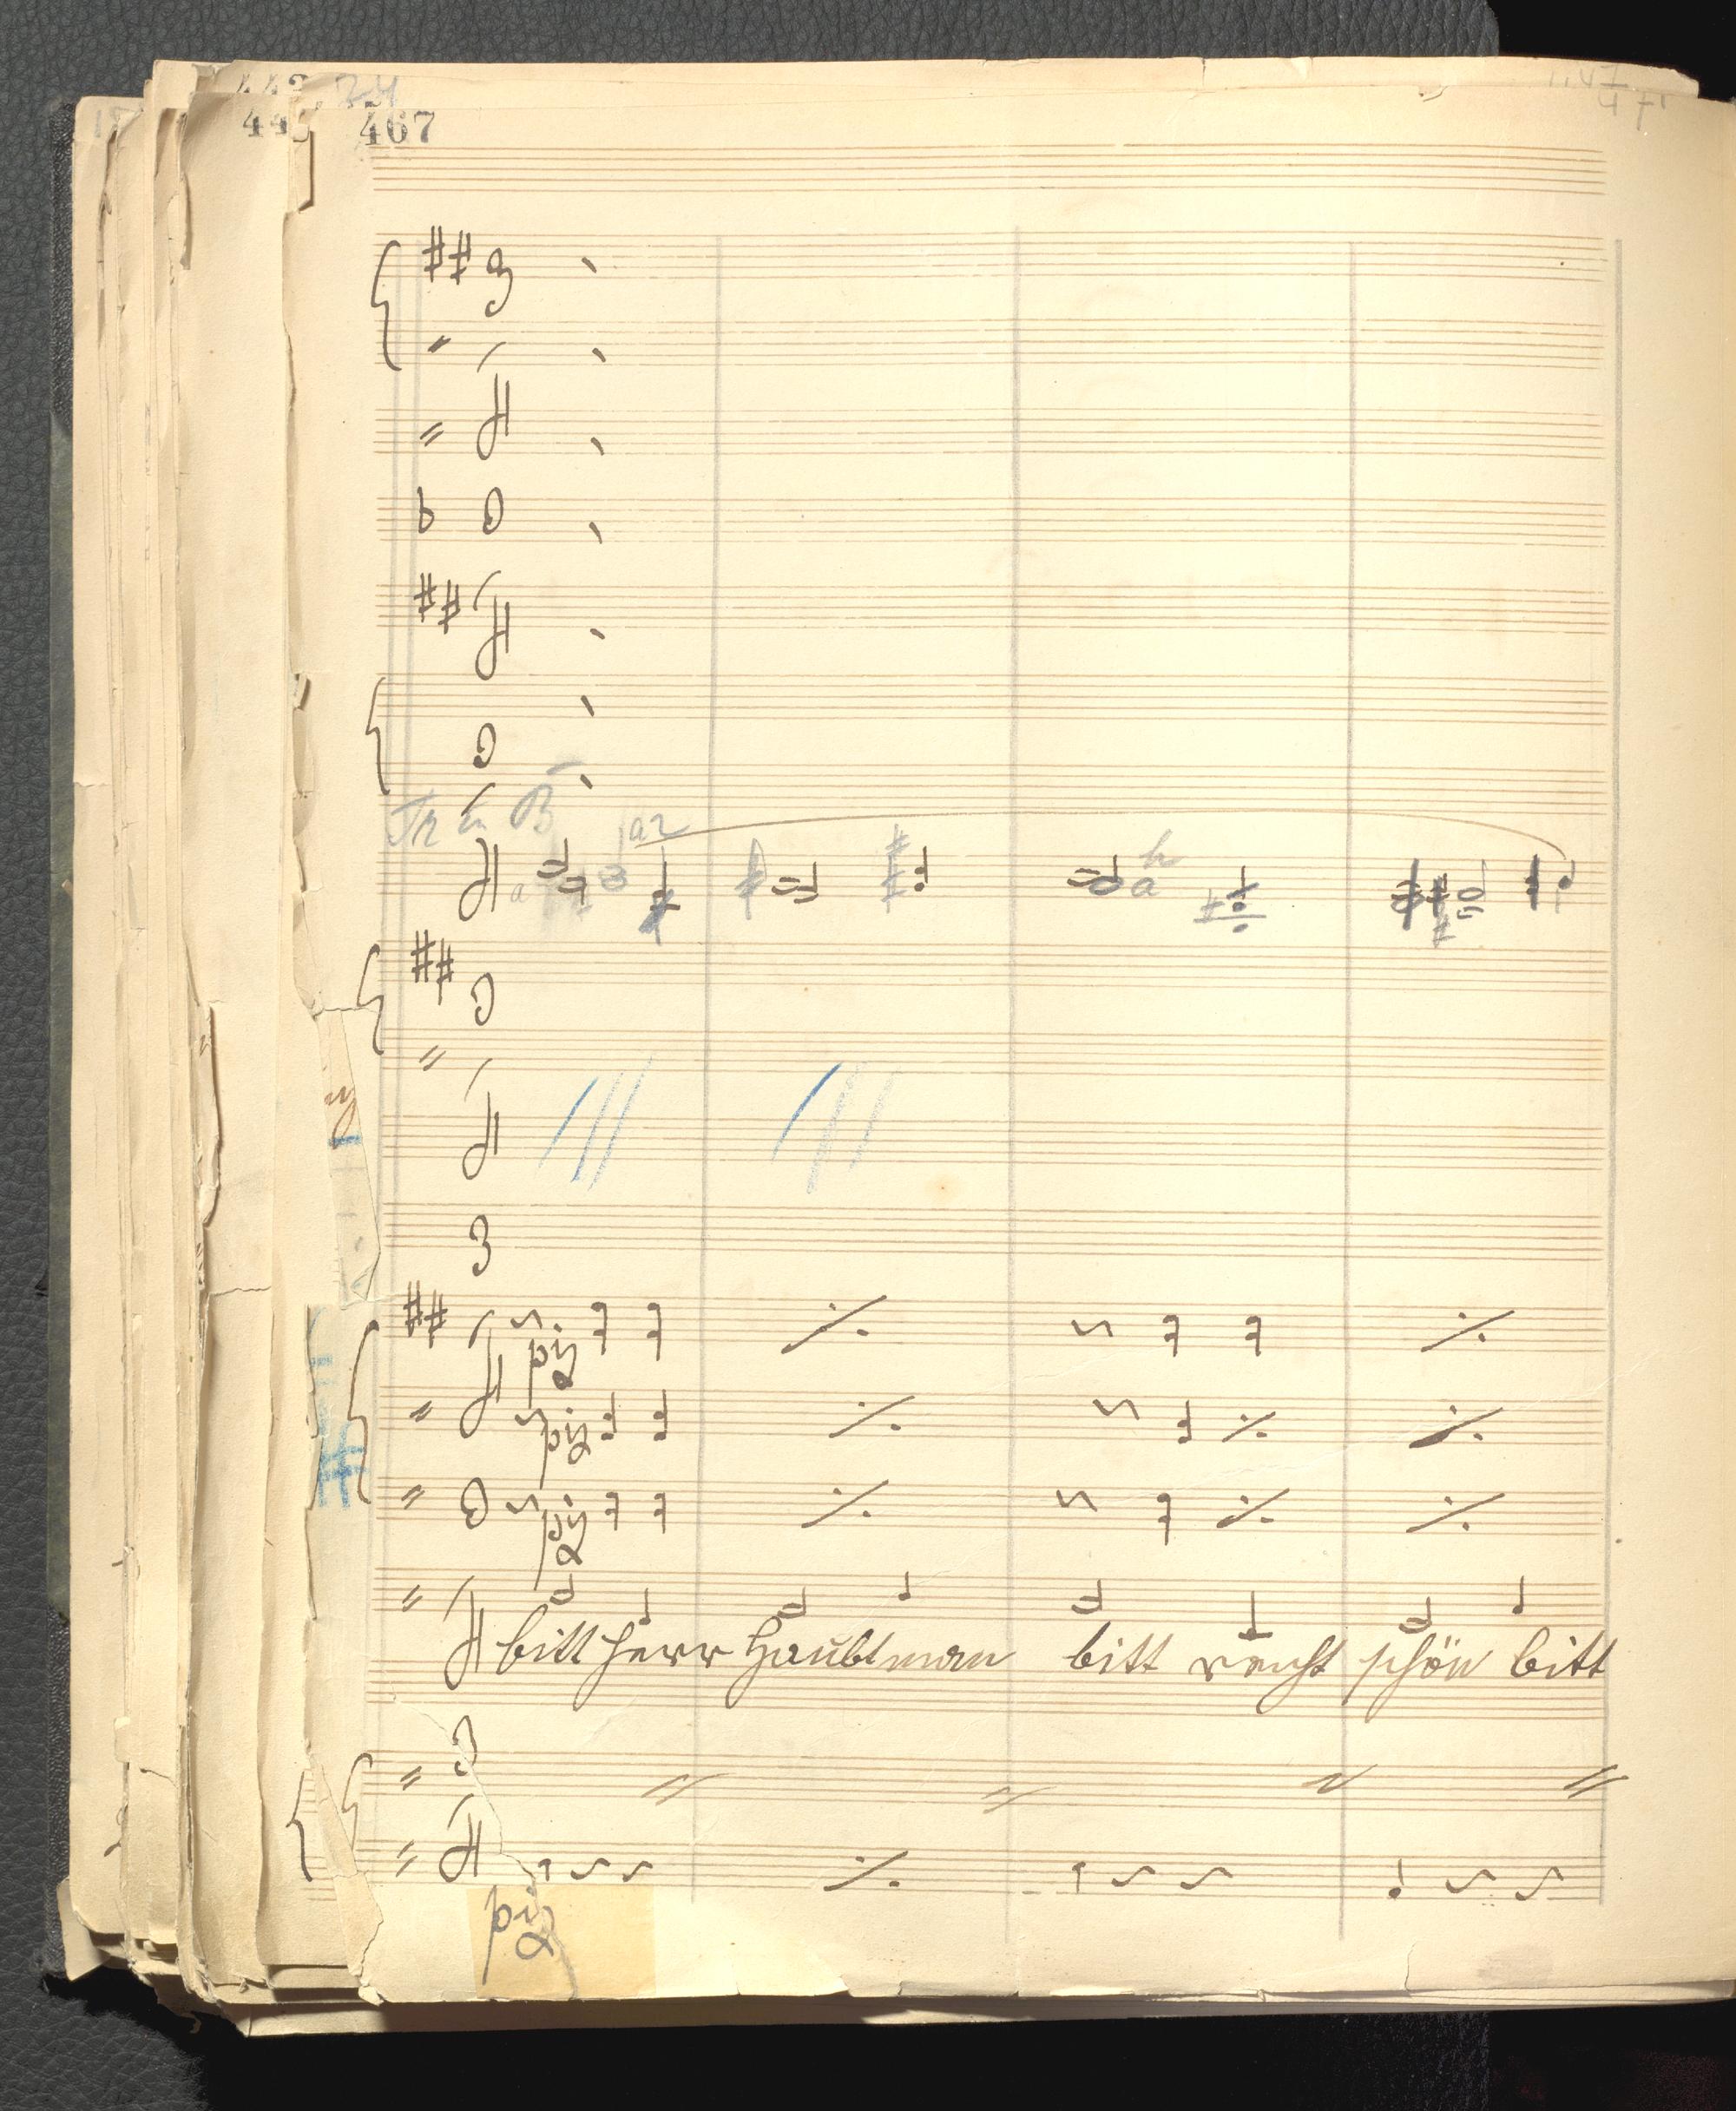 443
445 467
Tr in B
a2
a
h
a
piz
piz
piz
bitt herr Haubtman bitt recht schön bitt
piz